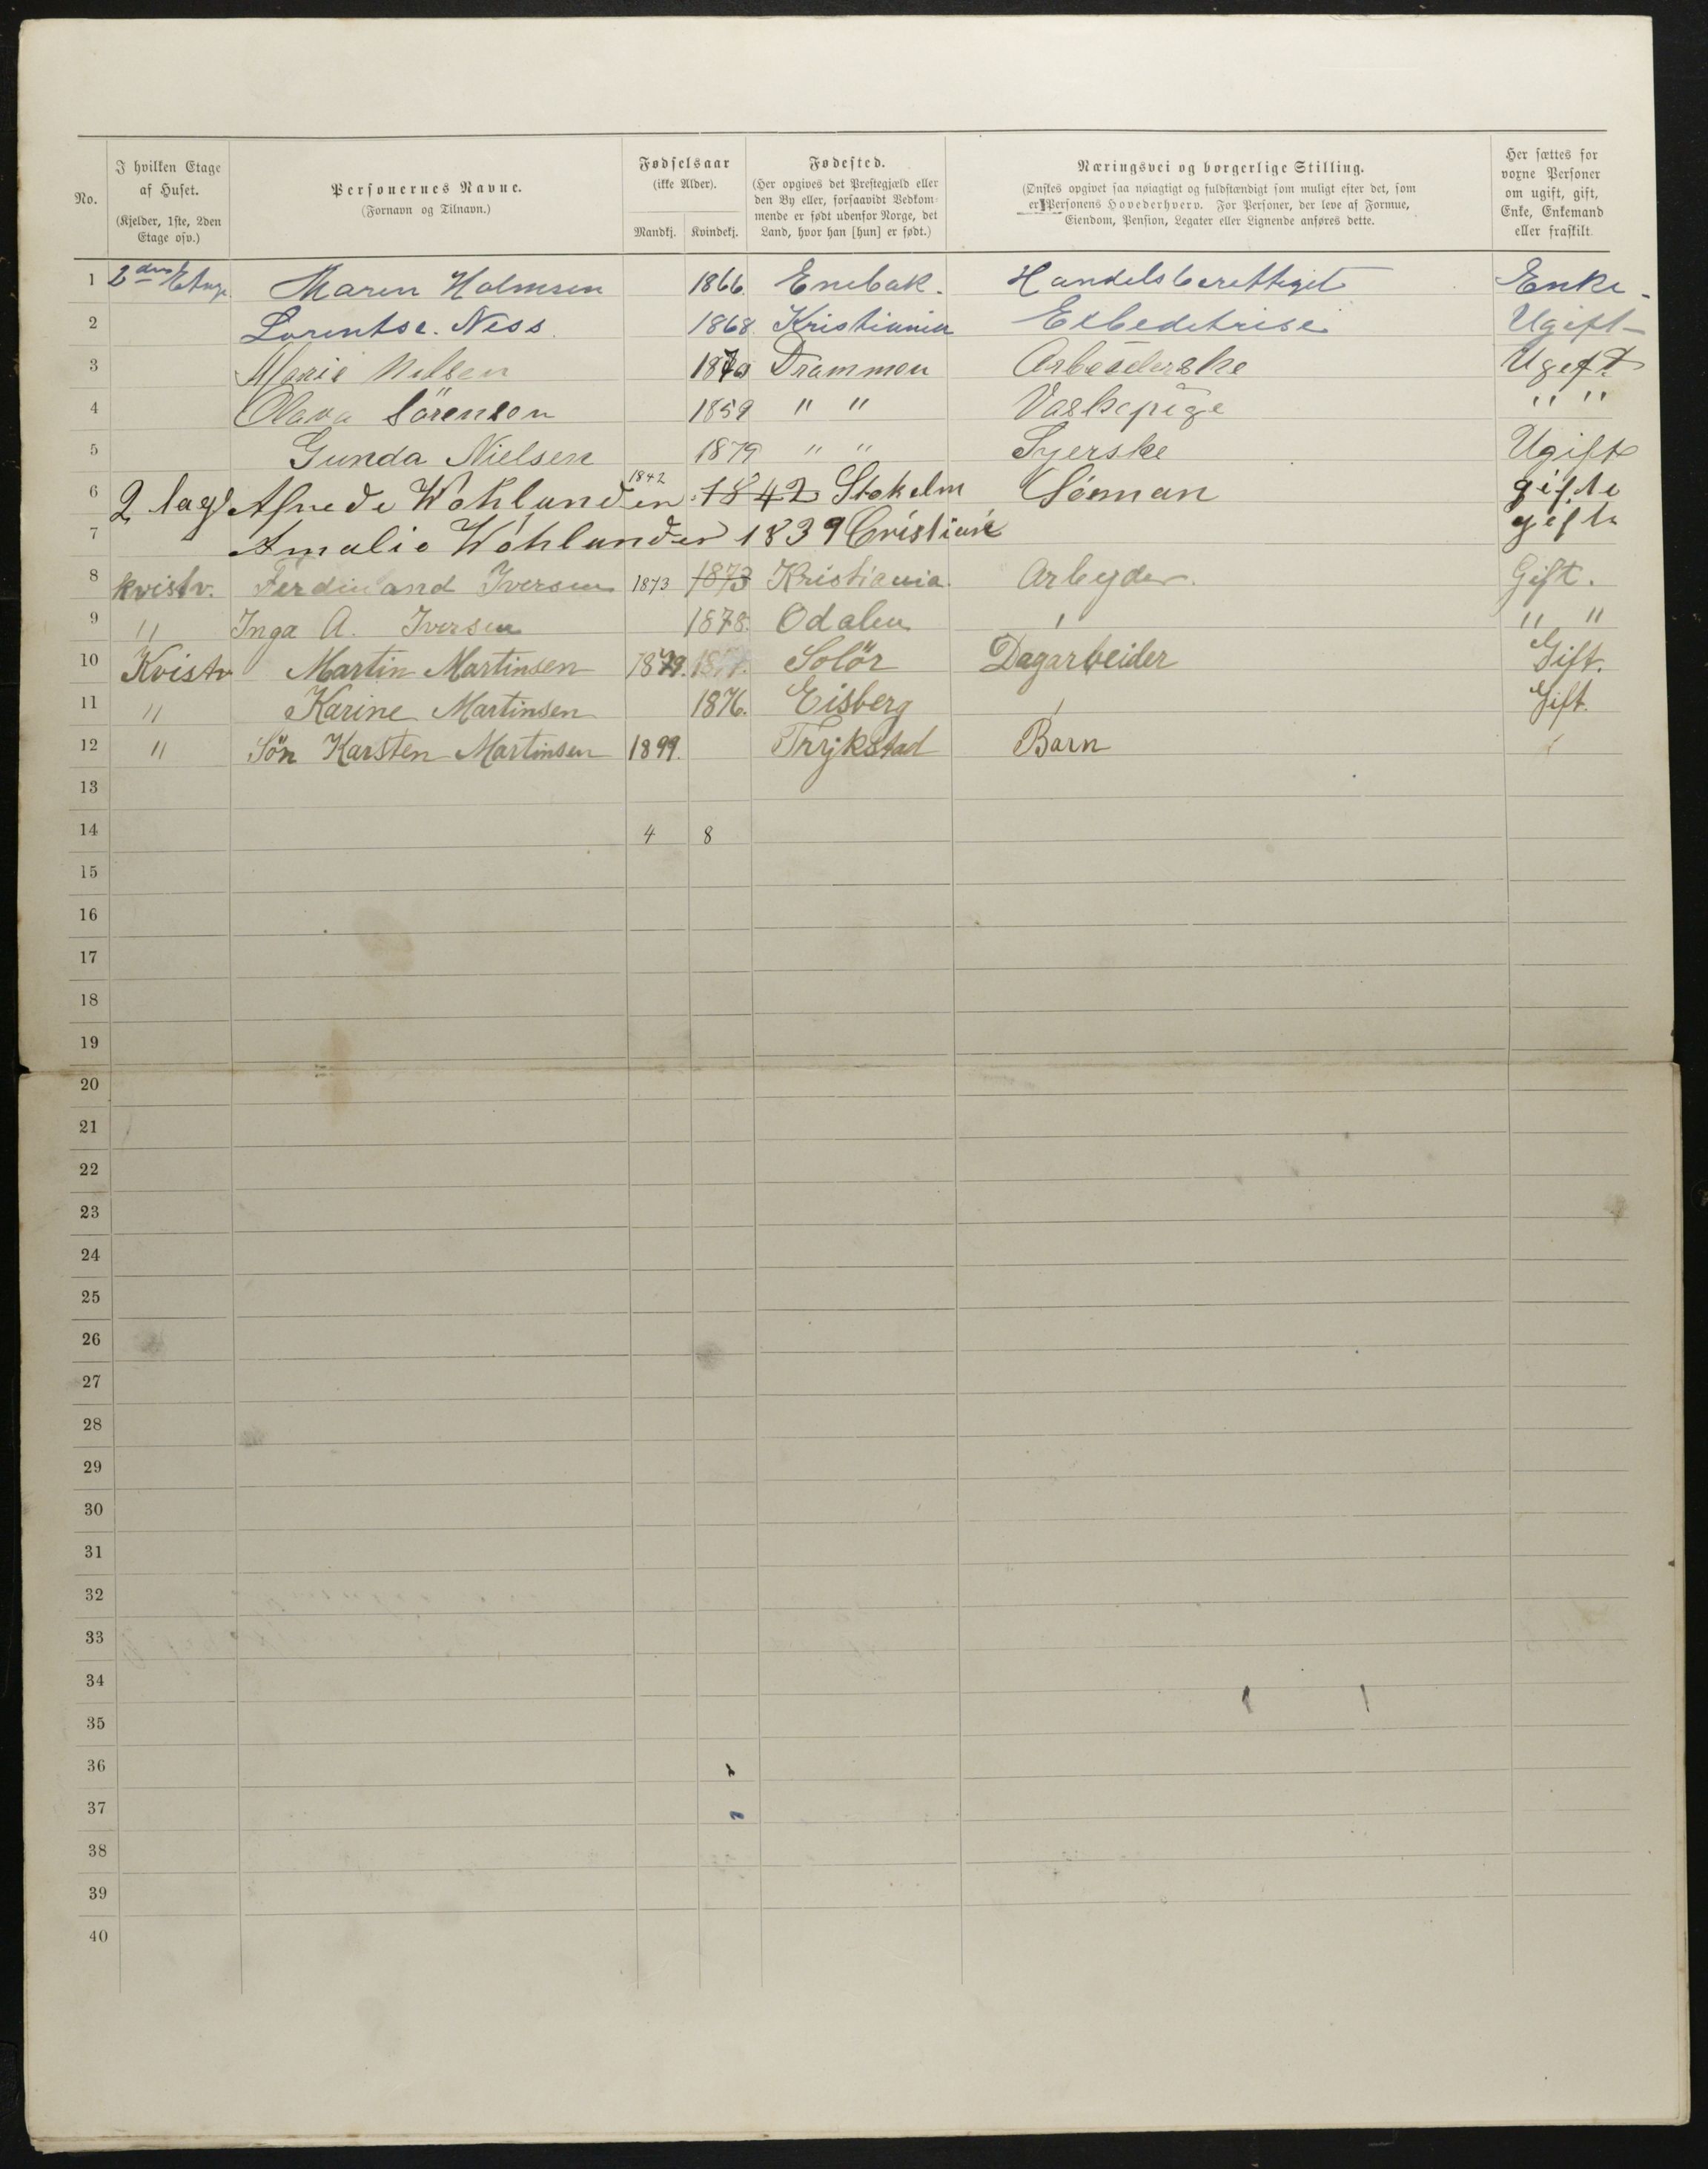 No.
I hvilken Etage
af Huset.
(Kjelder, 1ste, 2den
Etage osv.)
Personernes Navne.
(Fornavn og Tilnavn.)
Fødselsaar
(ikke Alder).
Mandkj. Kvindekj.
Fødested.
(Her opgives det Prestegjæld eller
den By eller, forsaavidt Vedkom-
mende er født udenfor Norge, det
Land, hvor han [hun] er født.)
Næringsvei og borgerlige Stilling.
(Ønskes opgivet saa nøiagtigt og fuldstændigt som muligt efter det, som
er Personens Hovederhverv. For Personer, der leve af Formue,
Eiendom, Pension, Legater eller Lignende anføres dette.
Her sættes for
voxne Personer
om ugift, gift,
Enke, Enkemand
eller fraskilt.
1 2den Etage Maren Holmsen 1866. Enebak. Handelsberettiget Enke.
2 Lorentse. Ness. 1868. Kristiania Ugift
3 Marie Nilsen Drammen Arbeiderske Ugift
4 Olava Sörensen 1859 " " Vaskepige " "
5 Gunda Nielsen 1879 " " Syerske Ugift
6 2 1842 1842 Stokelm Söman gifte
7 Amalie Wohlunder 1839 gifte
8 kvistv. Ferdinand Iversen 1873 1873 Kristiania. Arbeyder. Gift.
9 " Inga A. Iversen 1878. Odalen " "
10 Kvistv Martin Martinsen 1879. Solör Dagarbeider Gift.
11 " Karine Martinsen 1876. Eisberg Gift.
12 " Sön Karsten Martinsen 1899. Trykstad Barn
13
14 4 8
15
16
17
18
19
20
21
22
23
24
25
26
27
28
29
30
31
32
33
34
35
36
37
38
39
40